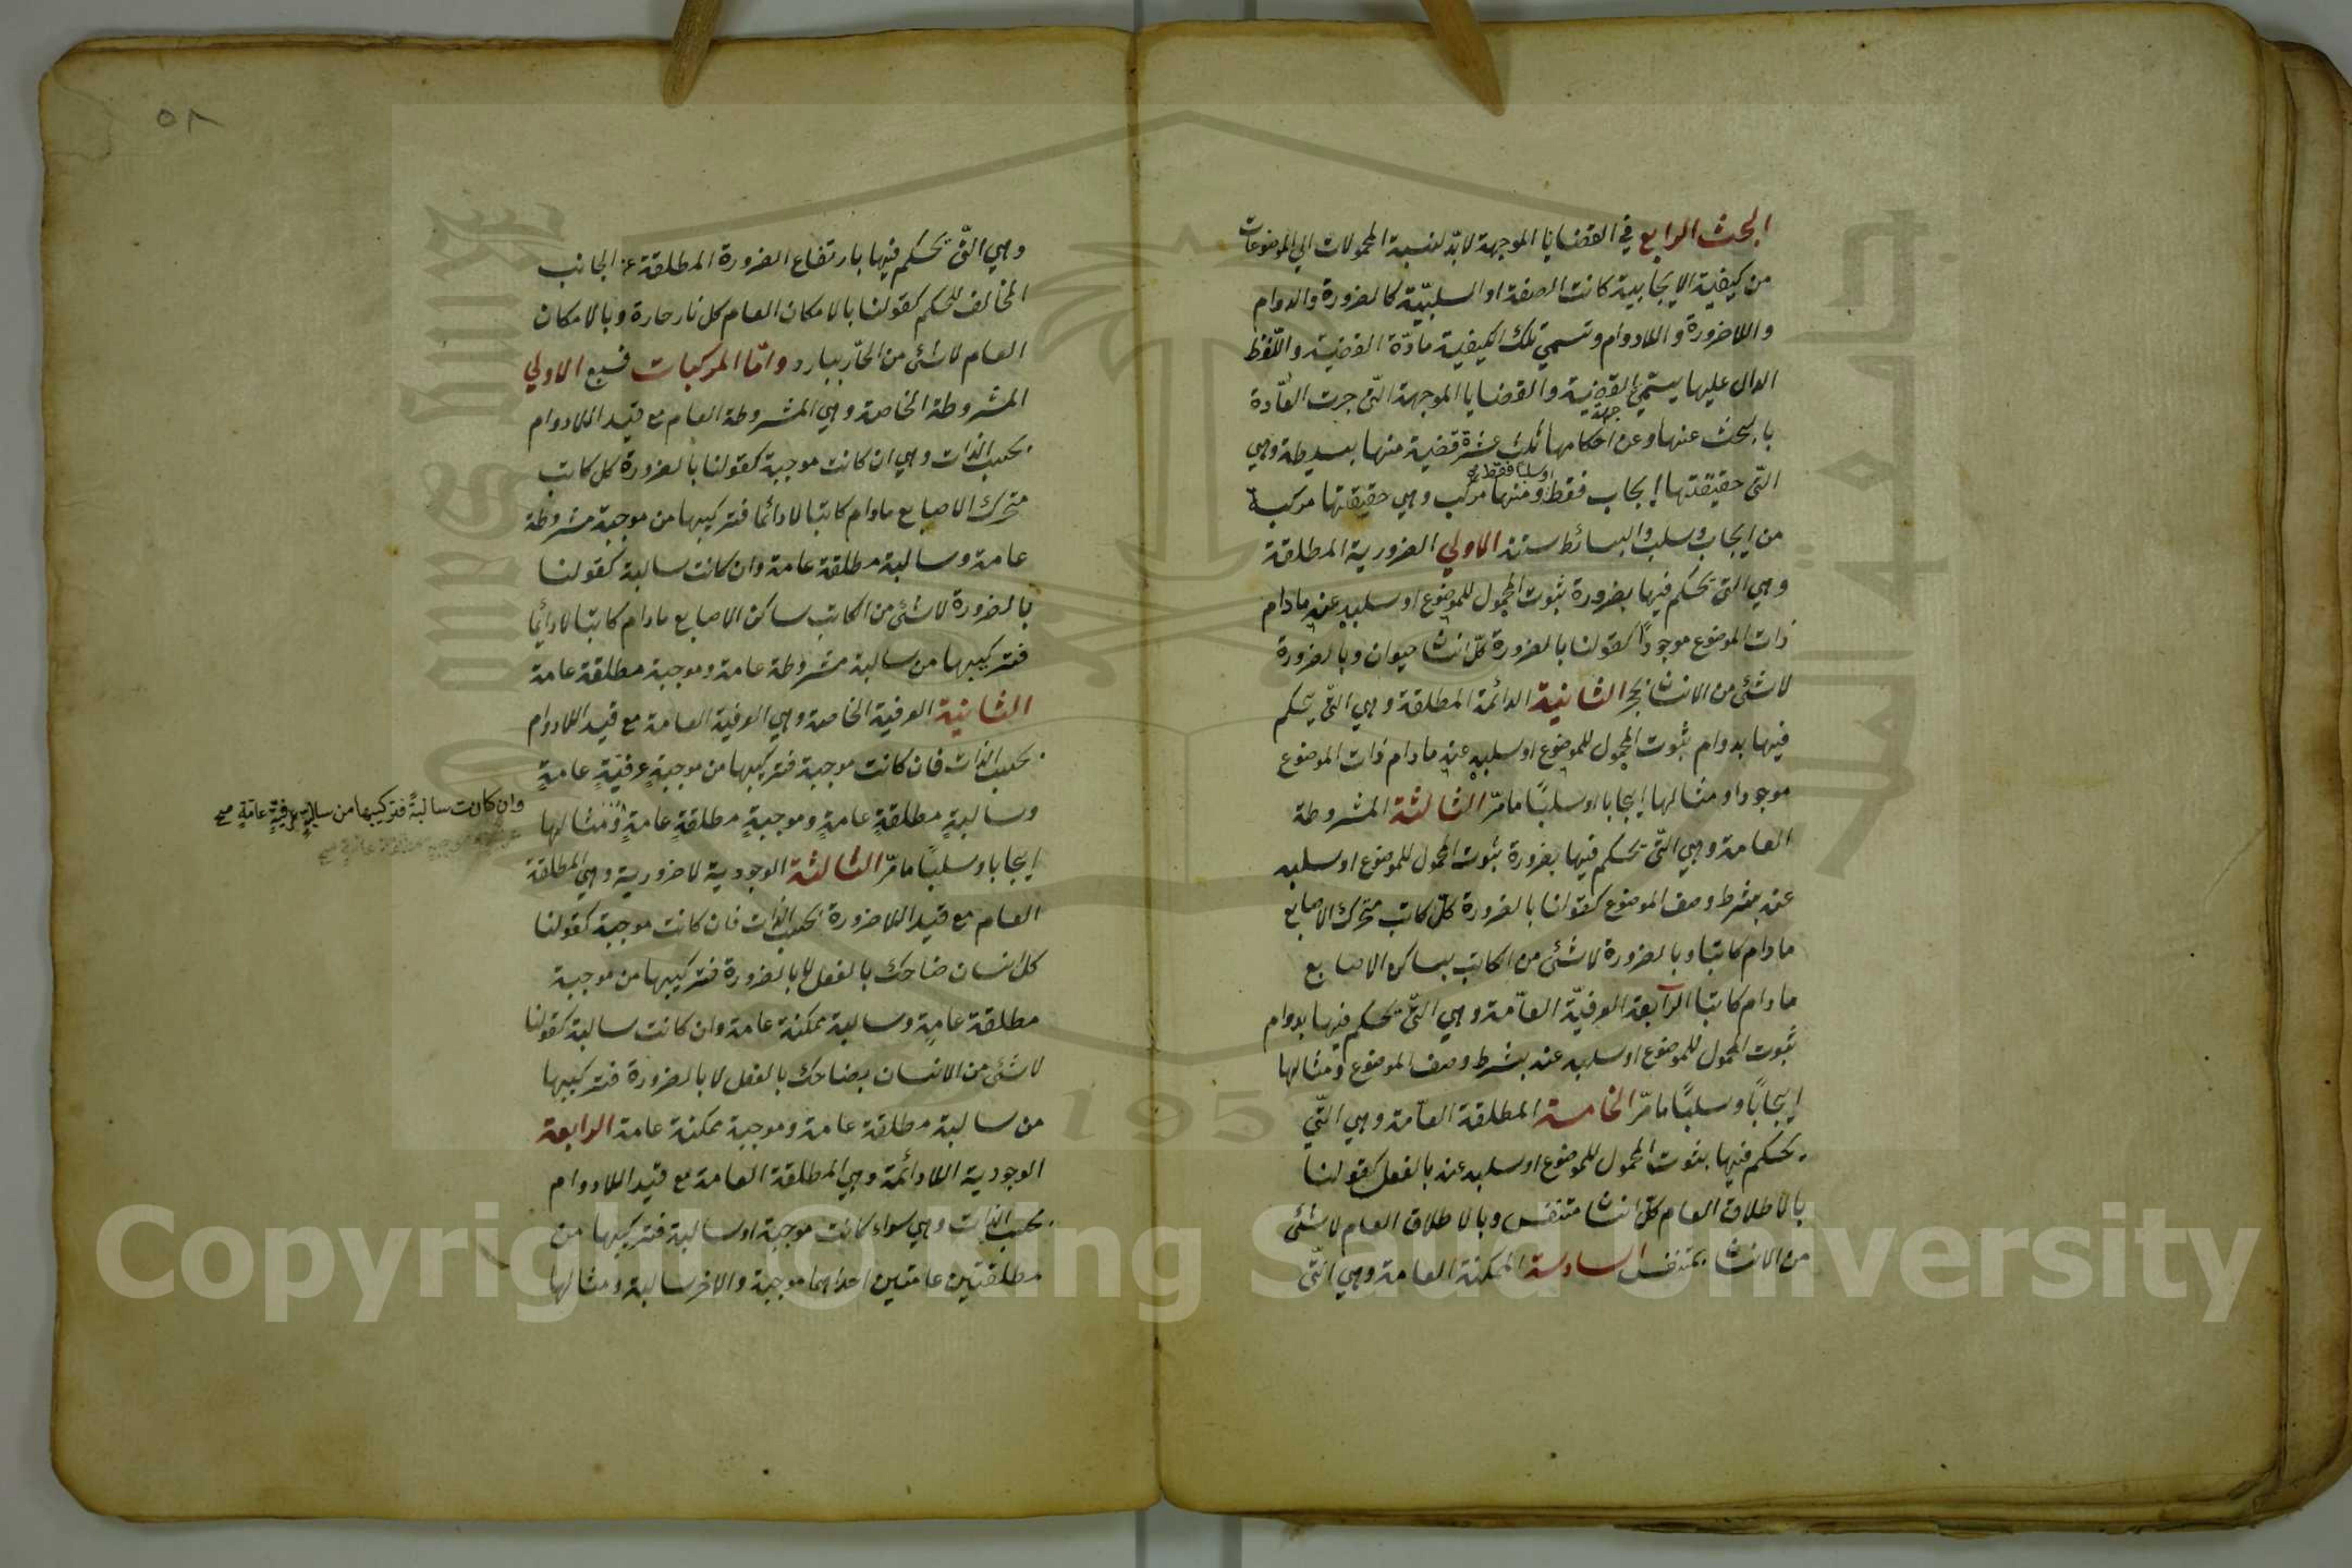 البحث الرابع في القضايا الموجهة لا بدّ لنسبة المحمولات الي الموضوعات
من كيفية الايجابية كانت الصفة او السلبيّة كالضرورة والدوام
واللاضرورة واللادوام وتسمي تلك الكيفية مادّة القضيّة واللّفظ
الدال عليها يسمّي القضية والقضايا الموجهة الّتي جرت العاّدة
جهة
بالبحث عنها وعن احكامها ثلث عشرة قضية منها بسيطة وهي
او سلبًا فقط صح
الّتي حقيقتها إيجاب فقط ومنها مركب وهي حقيقتها مركبة
من ايجاب وسلب والبسائط ستة الاولي الضرورية المطلقة
وهي التي تحكم فيها بضرورة ثبوت المحمول للموضوع او سلبه عنه مادام
ذات الموضوع موجودًا كقولنا بالضرورة كلّ انسا حيوان وبالضرورة
لا شئ من الانسا بحجر الثانية الدائمة المطلقة وهي الّتي يحكم
فيها بدوام ثبوت المحمول للموضوع او سلبه عنه مادام ذات الموضوع
موجودا ومثالها إيجابا او سلبًا ما مرّ الثالثة المشروطة
العامة وهي الّتي تحكم فيها بضرورة ثبوت المحمول للموضوع او سلبه
عنه بشرط وصف الموضوع كقولنا بالضرورة كلّ كاتب متحرك الاصابع
مادام كاتبا وبالضرورة لا شئ من الكاتب بساكن الاصابع
مادام كاتبا الرّابعة العرفيّة العاّمة وهي الّتي تحكم فيها بدوام
ثبوت المحمول للموضوع او سلبه عنه بشرط وصف الموضوع ومثالها
إيجابًا وسلبًا ما مرّ الخامسة المطلقة العاّمة وهي الّتي
يحكم فيها بثبوت المحمول للموضوع او سلبه عنه بالفعل كقولنا
بالاطلاق العام كلّ انسا متنفس وبالاطلاق العام لا شئ
من الانسا بمتنفس السادسة الممكنة العامة وهي الّتي
٥٨
وهي الّتي تحكم فيها بارتفاع الضرورة المطلقة عن الجانب
المخالف للحكم كقولنا بالامكان العام كل نار حارة وبالامكان
العام لا شئ من الحارّ ببارد وامّا المركبات فسبع الاولي
المشروطة الخاصة وهي المشروطة العام مع قيد اللادوام
بحسب الذات وهي ان كانت موجبة كقولنا بالضرورة كل كاتب
متحرك الاصابع مادام كاتبا لا دائما فتركيبها من موجبة مشروطة
عامة وسالبة مطلقة عامة وان كانت سالبة كقولنا
بالضرورة لا شئ من الكاتب ساكن الاصابع مادام كاتبا لا دائما
فتركيبها من سالبة مشروطة عامة وموجبة مطلقة عامة
الثانية العرفية الخاصة وهي العرفية العامة مع قيد اللادوام
بحسب الذات فان كانت موجبة فتركيبها من موجبةٍ عرفيّةٍ عامةٍ
وسالبةٍ مطلقةٍ عامةٍ وموجبةٍ مطلقةٍ عامةٍ ومثالها
وان كانت سالبةً فتركيبها من سالبةٍ عرفيةٍ عامّةٍ صح
إيجابا وسلبًا ما مرّ الثالثة الوجودية لا ضرورية وهي المطلقة
العام مع قيد اللاضرورة بحسب الذات فان كانت موجبة كقولنا
كل انسان ضاحك بالفعل لا بالضرورة فتركيبها من موجبة
مطلقة عامةٍ وسالبة ممكنة عامة وان كانت سالبة كقولنا
لا شئ من الانسان بضاحك بالفعل لا بالضرورة فتركيبها
من سالبة مطلقة عامة وموجبة ممكنة عامة الرابعة
الوجودية اللادائمة وهي المطلقة العامة مع قيد اللادوام
بحسب الذات وهي سواء كانت موجبة او سالبة فتركيبها من
مطلقتين عامتين احداهما موجبة والاخر سالبة ومثالها
جامعة الملك سعود
King Saud University
1957
Copyright © King Saud University